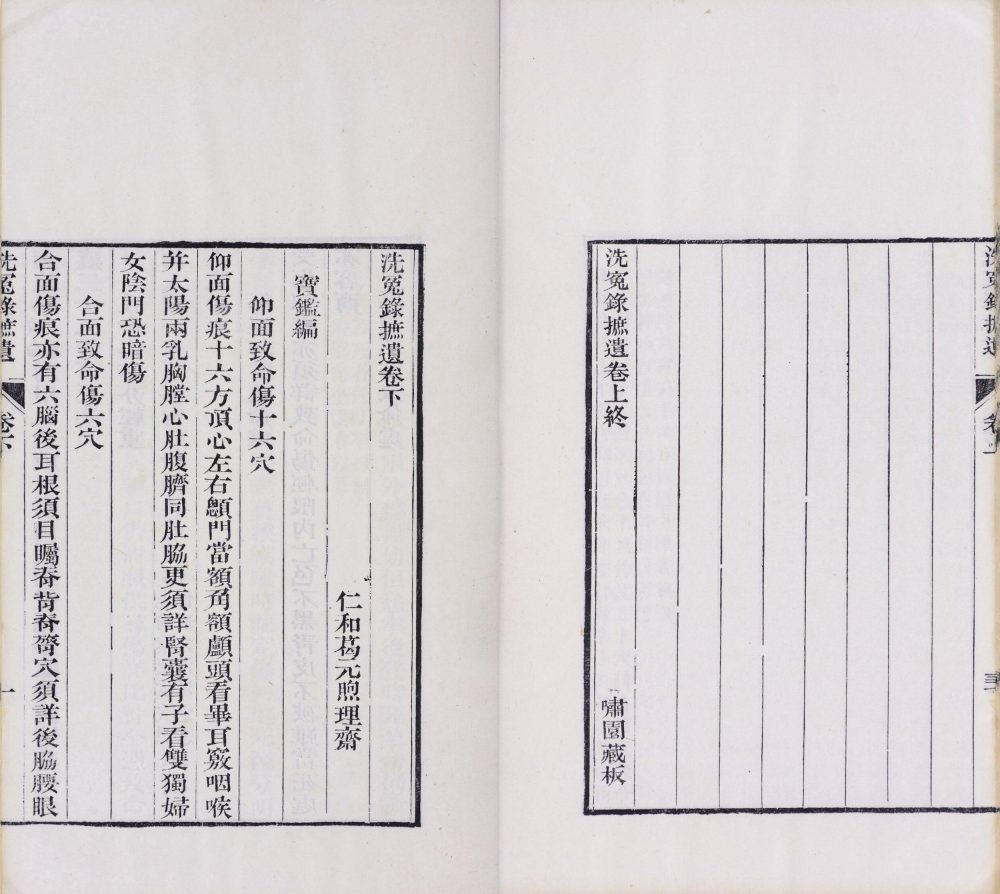 洗冤錄摭遺
洗冤錄摭遺卷上終
嘯園藏板
洗冤錄摭遺卷下
仁和葛元煦理齋
寶鑑編
仰面致命傷十六穴
仰面傷痕十六方頂心左右顖門當額角額顱頭看畢耳竅咽喉
并太陽兩乳胸膛心肚腹臍同肚脇更須詳腎囊有子看雙獨婦
女陰門恐暗傷
合面致命傷六穴
合面傷痕亦有六腦後耳根須目矚脊背脊膂穴須詳後脇腰眼
洗冤錄摭遺
卷下
一